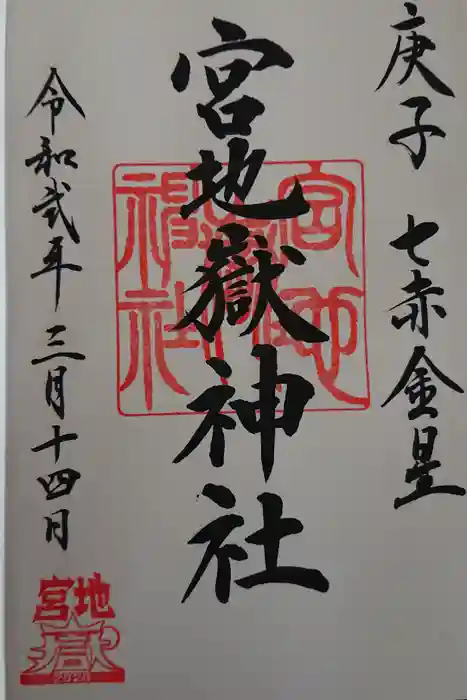 庚子 七赤金星
宮地嶽神社
令和弐年三月十四日
宮地嶽神社
宮地
嶽
2020